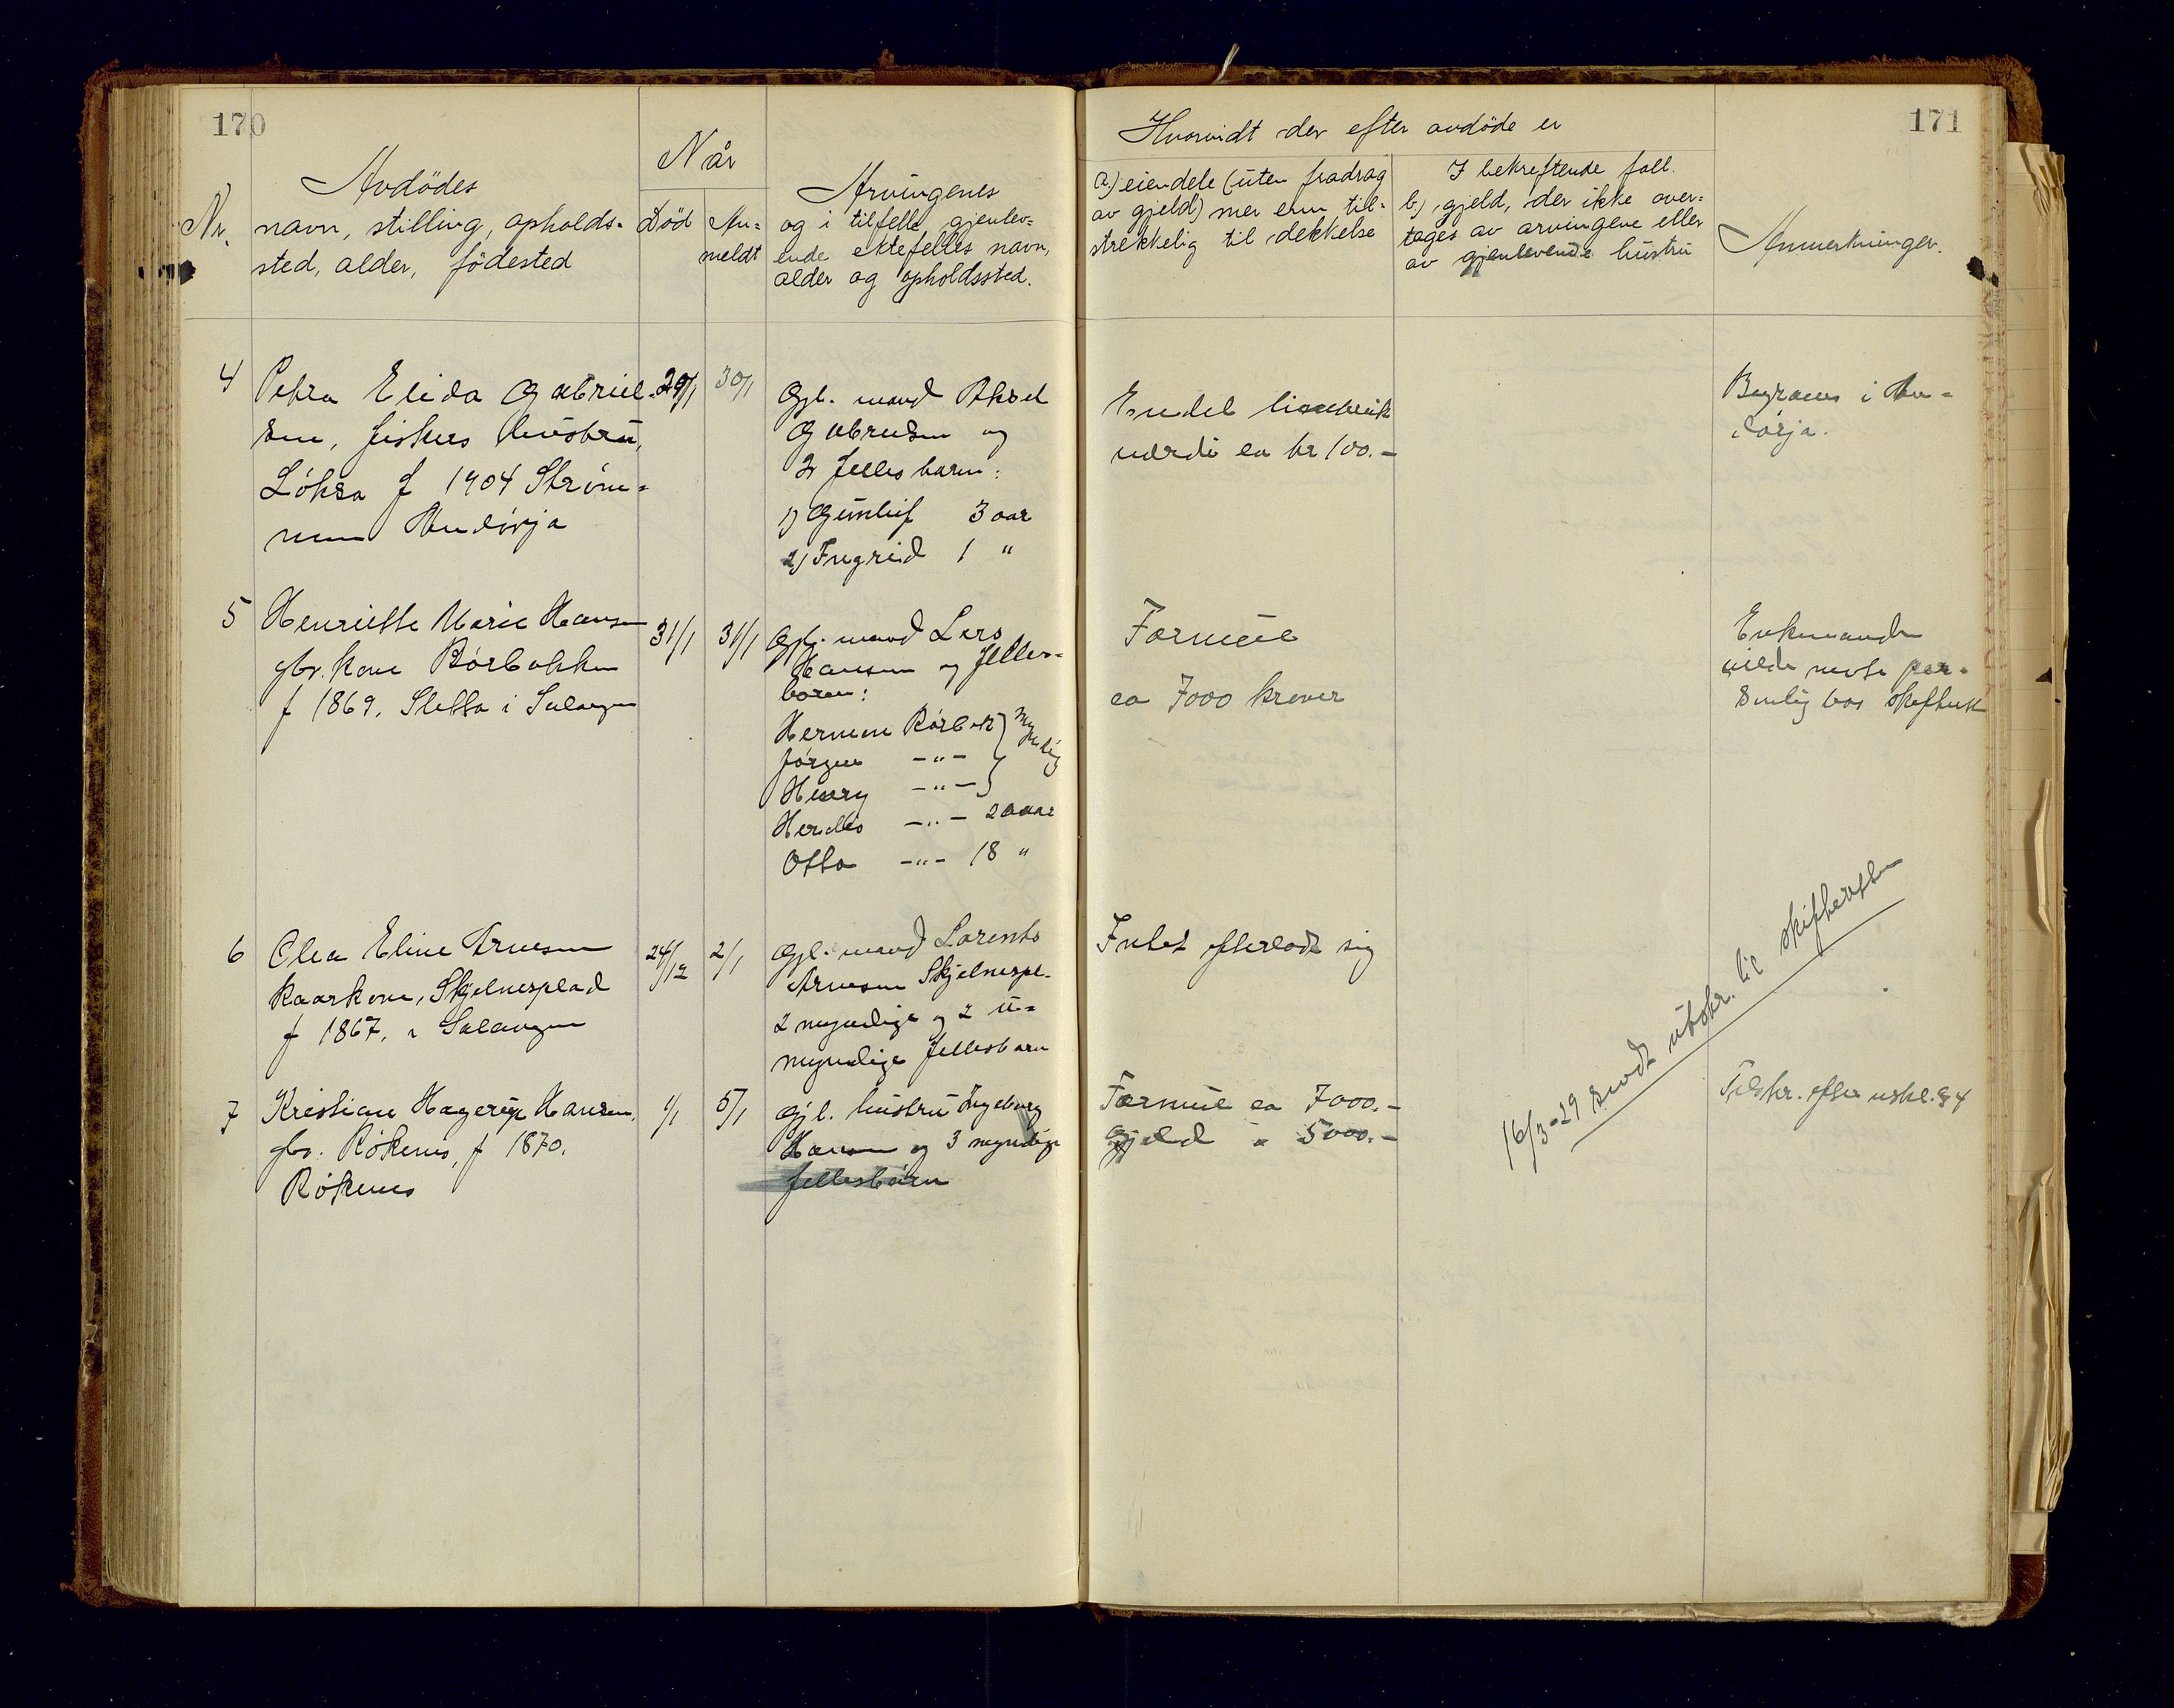 170
Avdödes
Nr. navn, stilling, opholds-
sted, alder, födested
Når
Död
An-
meldt
Arvingenes
og i tilfelle gjenlev-
ende ektefelles navn,
alder og opholdssted.
4
Petra Elida Gabriel-
sen, fiskers hustru,
Løksa f 1904 Strøm-
men Andørja
29/1
30/1
Gjl. mand Aksel
Gabrielsen og
2 felles barn:
1) Gunleif 3 aar
2) Ingrid 1 "
5
Henriette Marie Hansen
gbr. kone Rørbakken
f 1869. Sletta i Salangen
31/1
31/1
Gjl. mand Lars
Hansen og felles-
barn:
Herman Rørbak } Myndig
Jørgen -"-
Henry -"-
Herdis -"- 20 aar
Otto -"- 18 "
6
Olea Eline Arnesen
kaarkone, Skjelnesplad
f 1867. i Salangen
24/12
2/1
Gjl. mand Lorents
Arnesen Skjelnespl.
2 myndige og 2 u-
myndige fellesbarn
7
Kristian Hagerup Hansen.
gbr. Røkenes, f 1870.
Røkenes
1/1
5/1
Gjl. hustru Ingeborg
Hansen og 3 myndige
fellesbarn
171
Hvorvidt der efter avdöde er
a.) eiendele (uten fradrag
av gjeld) mer enn til-
strekkelig til dekkelse
I bekreftende fall.
b.) gjeld, der ikke over-
tages av arvingene eller
av gjenlevende hustru
Anmerkninger.
Endel
verdi ca kr 100.-
Begraves i An-
dørja.
Formue
ca 7000 kroner
Enkemanden
vilde møte per-
sonlig hos skifteret
Intet efterlodt sig
Formue ca 7000.-
Gjeld " 5000.-
16/3-29 sendt utskr. til skifteretten